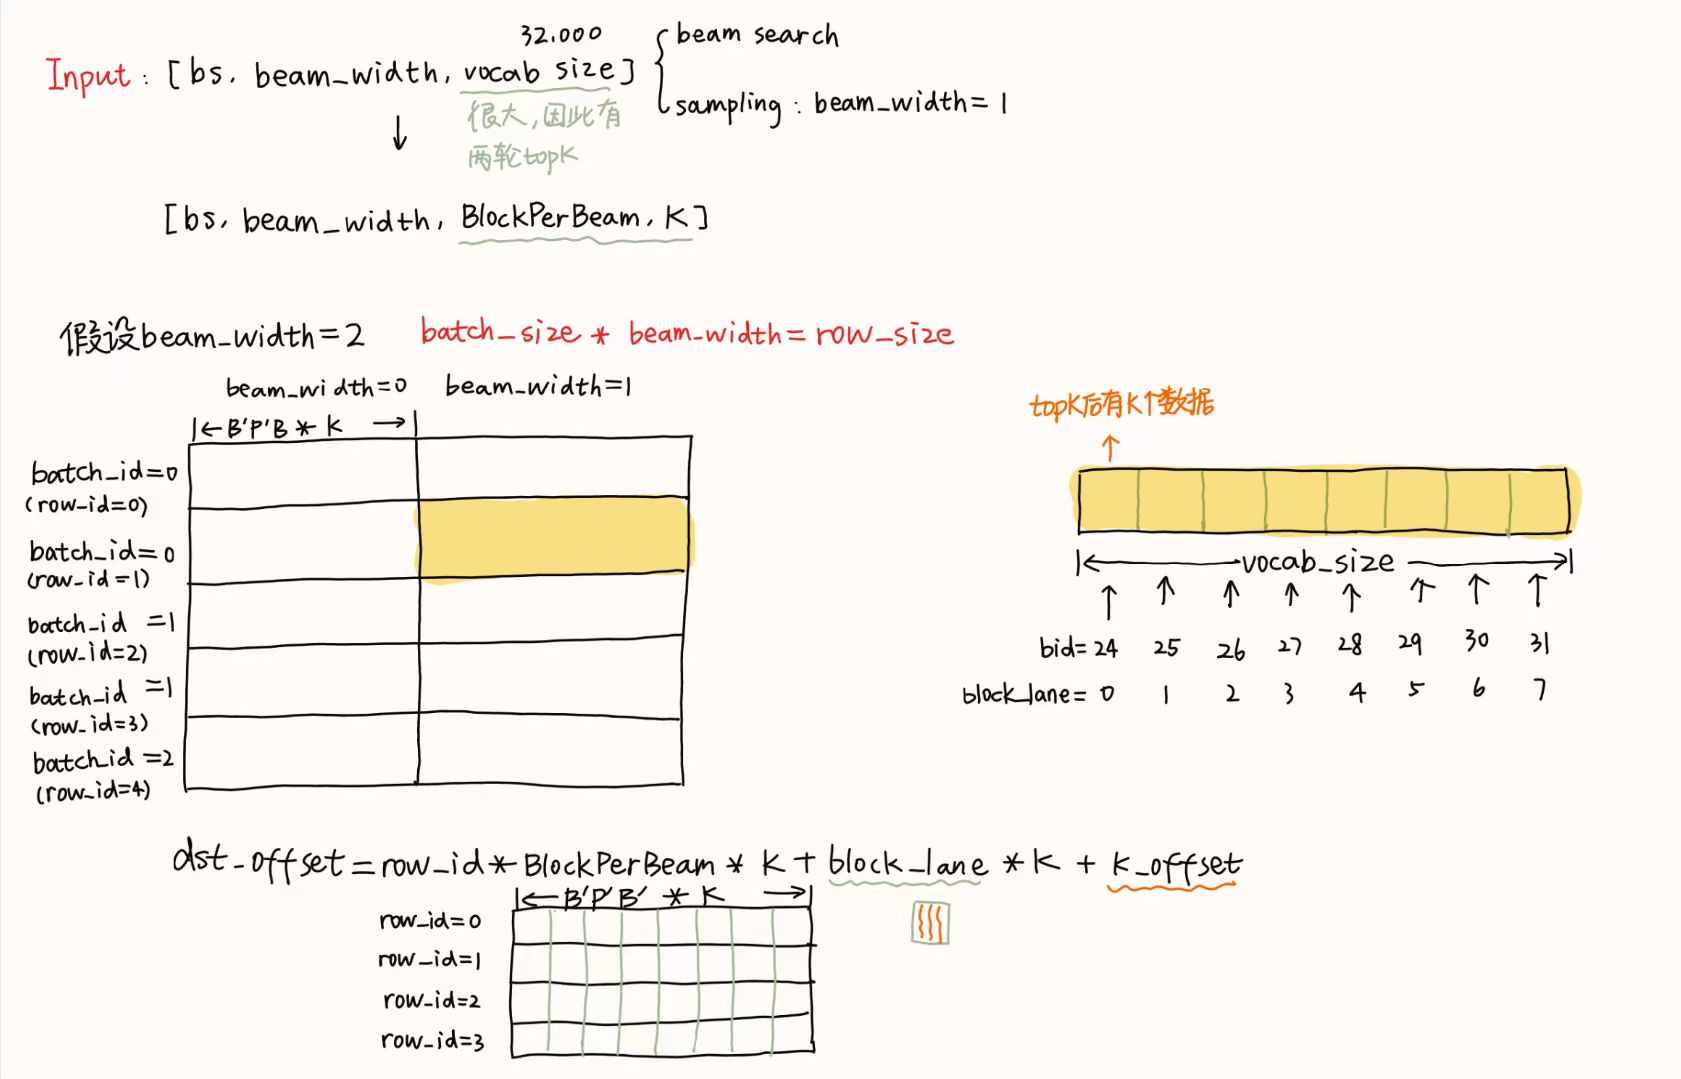 32.000
Input : [bs, beam_width, vocab size]
beam search
sampling : beam_width=1
很大,因此有
两轮topK
[bs, beam_width, BlockPerBeam, K]
假设beam_width=2
batch_size * beam_width=row_size
beam_width=0 beam_width=1
|←B'P'B * K →|
batch_id=0
(row_id=0)
batch_id=0
(row_id=1)
batch_id =1
(row_id=2)
batch_id =1
(row_id=3)
batch_id =2
(row_id=4)
topK后有K个数据
|← vocab_size →|
bid=24 25 26 27 28 29 30 31
block_lane=0 1 2 3 4 5 6 7
dst_offset=row_id*BlockPerBeam * K+block_lane *K + K_offset
|←B'P'B' * K →|
row_id=0
row_id=1
row_id=2
row_id=3